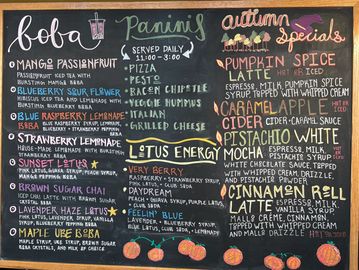 boba
MANGO PASSIONFRUIT
PASSIONFRUIT ICED TEA WITH
BURSTING MANGO BOBA
BLUEBERRY SOUR FLOWER
HIBISCUS TEA AND LEMONADE WITH
BURSTING BLUEBERRY BOBA
BLUE RASPBERRY LEMONADE
BOBA
BLUE RASPBERRY SYRUP, LEMONADE,
BLUEBERRY + STRAWBERRY POPPING
BOBA
STRAWBERRY LEMONADE
HOUSE-MADE LEMONADE WITH BURSTING
STRAWBERRY BOBA
SUNSET LOTUS
PINK LOTUS, GUAVA SYRUP, PEACH SYRUP,
MANGO POPPING BOBA
BROWN SUGAR CHAI
ICED CHAI LATTE WITH BROWN SUGAR
CRYSTAL BOBA
LAVENDER HAZE LOTUS
PINK LOTUS, LAVENDER SYRUP, VANILLA
SYRUP, BLUEBERRY POPPING BOBA
MAPLE UBE BOBA
MAPLE SYRUP, UBE SYRUP, BROWN SUGAR
BOBA CRYSTALS, AND MILK OF CHOICE
Paninis
SERVED DAILY
11:00 - 3:00
- PIZZA
- PESTO
- BACON CHIPOTLE
- VEGGIE HUMMUS
- ITALIAN
- GRILLED CHEESE
LOTUS ENERGY
- VERY BERRY
RASPBERRY + STRAWBERRY SYRUP
PINK LOTUS, + CLUB SODA
- DAYDREAM
PEACH + GUAVA SYRUP, PURPLE LOTUS,
+ CLUB SODA
- FEELIN' BLUE
LAVENDER + BLUEBERRY SYRUP
BLUE LOTUS, CLUB SODA, + LEMONADE
autumn
Specials
PUMPKIN SPICE
LATTE HOT OR ICED
ESPRESSO, MILK PUMPKIN SPICE
SYRUP TOPPED WITH WHIPPED CREAM
CARAMEL APPLE HOT OR ICED
CIDER - CIDER + CARAMEL SAUCE
PISTACHIO WHITE
MOCHA ESPRESSO, MILK,
PISTACHIO SYRUP
WHITE CHOCOLATE SAUCE, TOPPED
WITH WHIPPED CREAM, DRIZZLE,
AND PISTACHIO POWDER
CINNAMON ROLL
LATTE ESPRESSO, MILK,
VANILLA SYRUP
CINNAMON, TOPPED
WITH WHIPPED CREAM
DRIZZLE HOT OR ICED